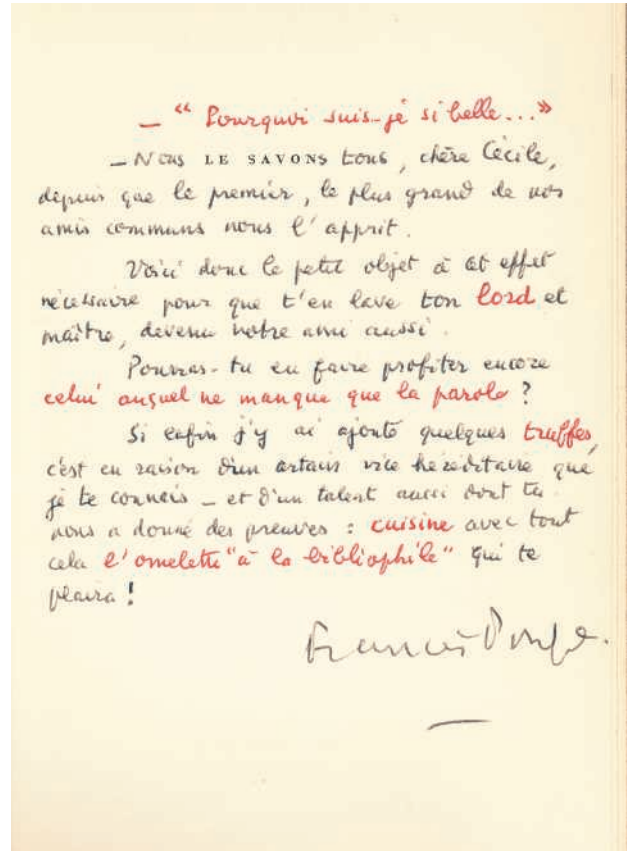 — “ Pourquoi suis-je si belle... ”
— Nous LE SAVONS tous, chère Cécile,
depuis que le premier, le plus grand de nos
amis communs nous l'apprit.
Voici donc le petit objet à cet effet
nécessaire pour que t'en lave ton lord et
maître, devenu notre ami aussi.
Pourras-tu en faire profiter encore
celui auquel ne manque que la parole ?
Si enfin j'y ai ajouté quelques truffes,
c'est en raison d'un certain vice héréditaire que
je te connais — et d'un talent aussi dont tu
nous a donné des preuves : cuisine avec tout
cela l'omelette "à la bibliophile" qui te
plaira !
Francis Ponge.